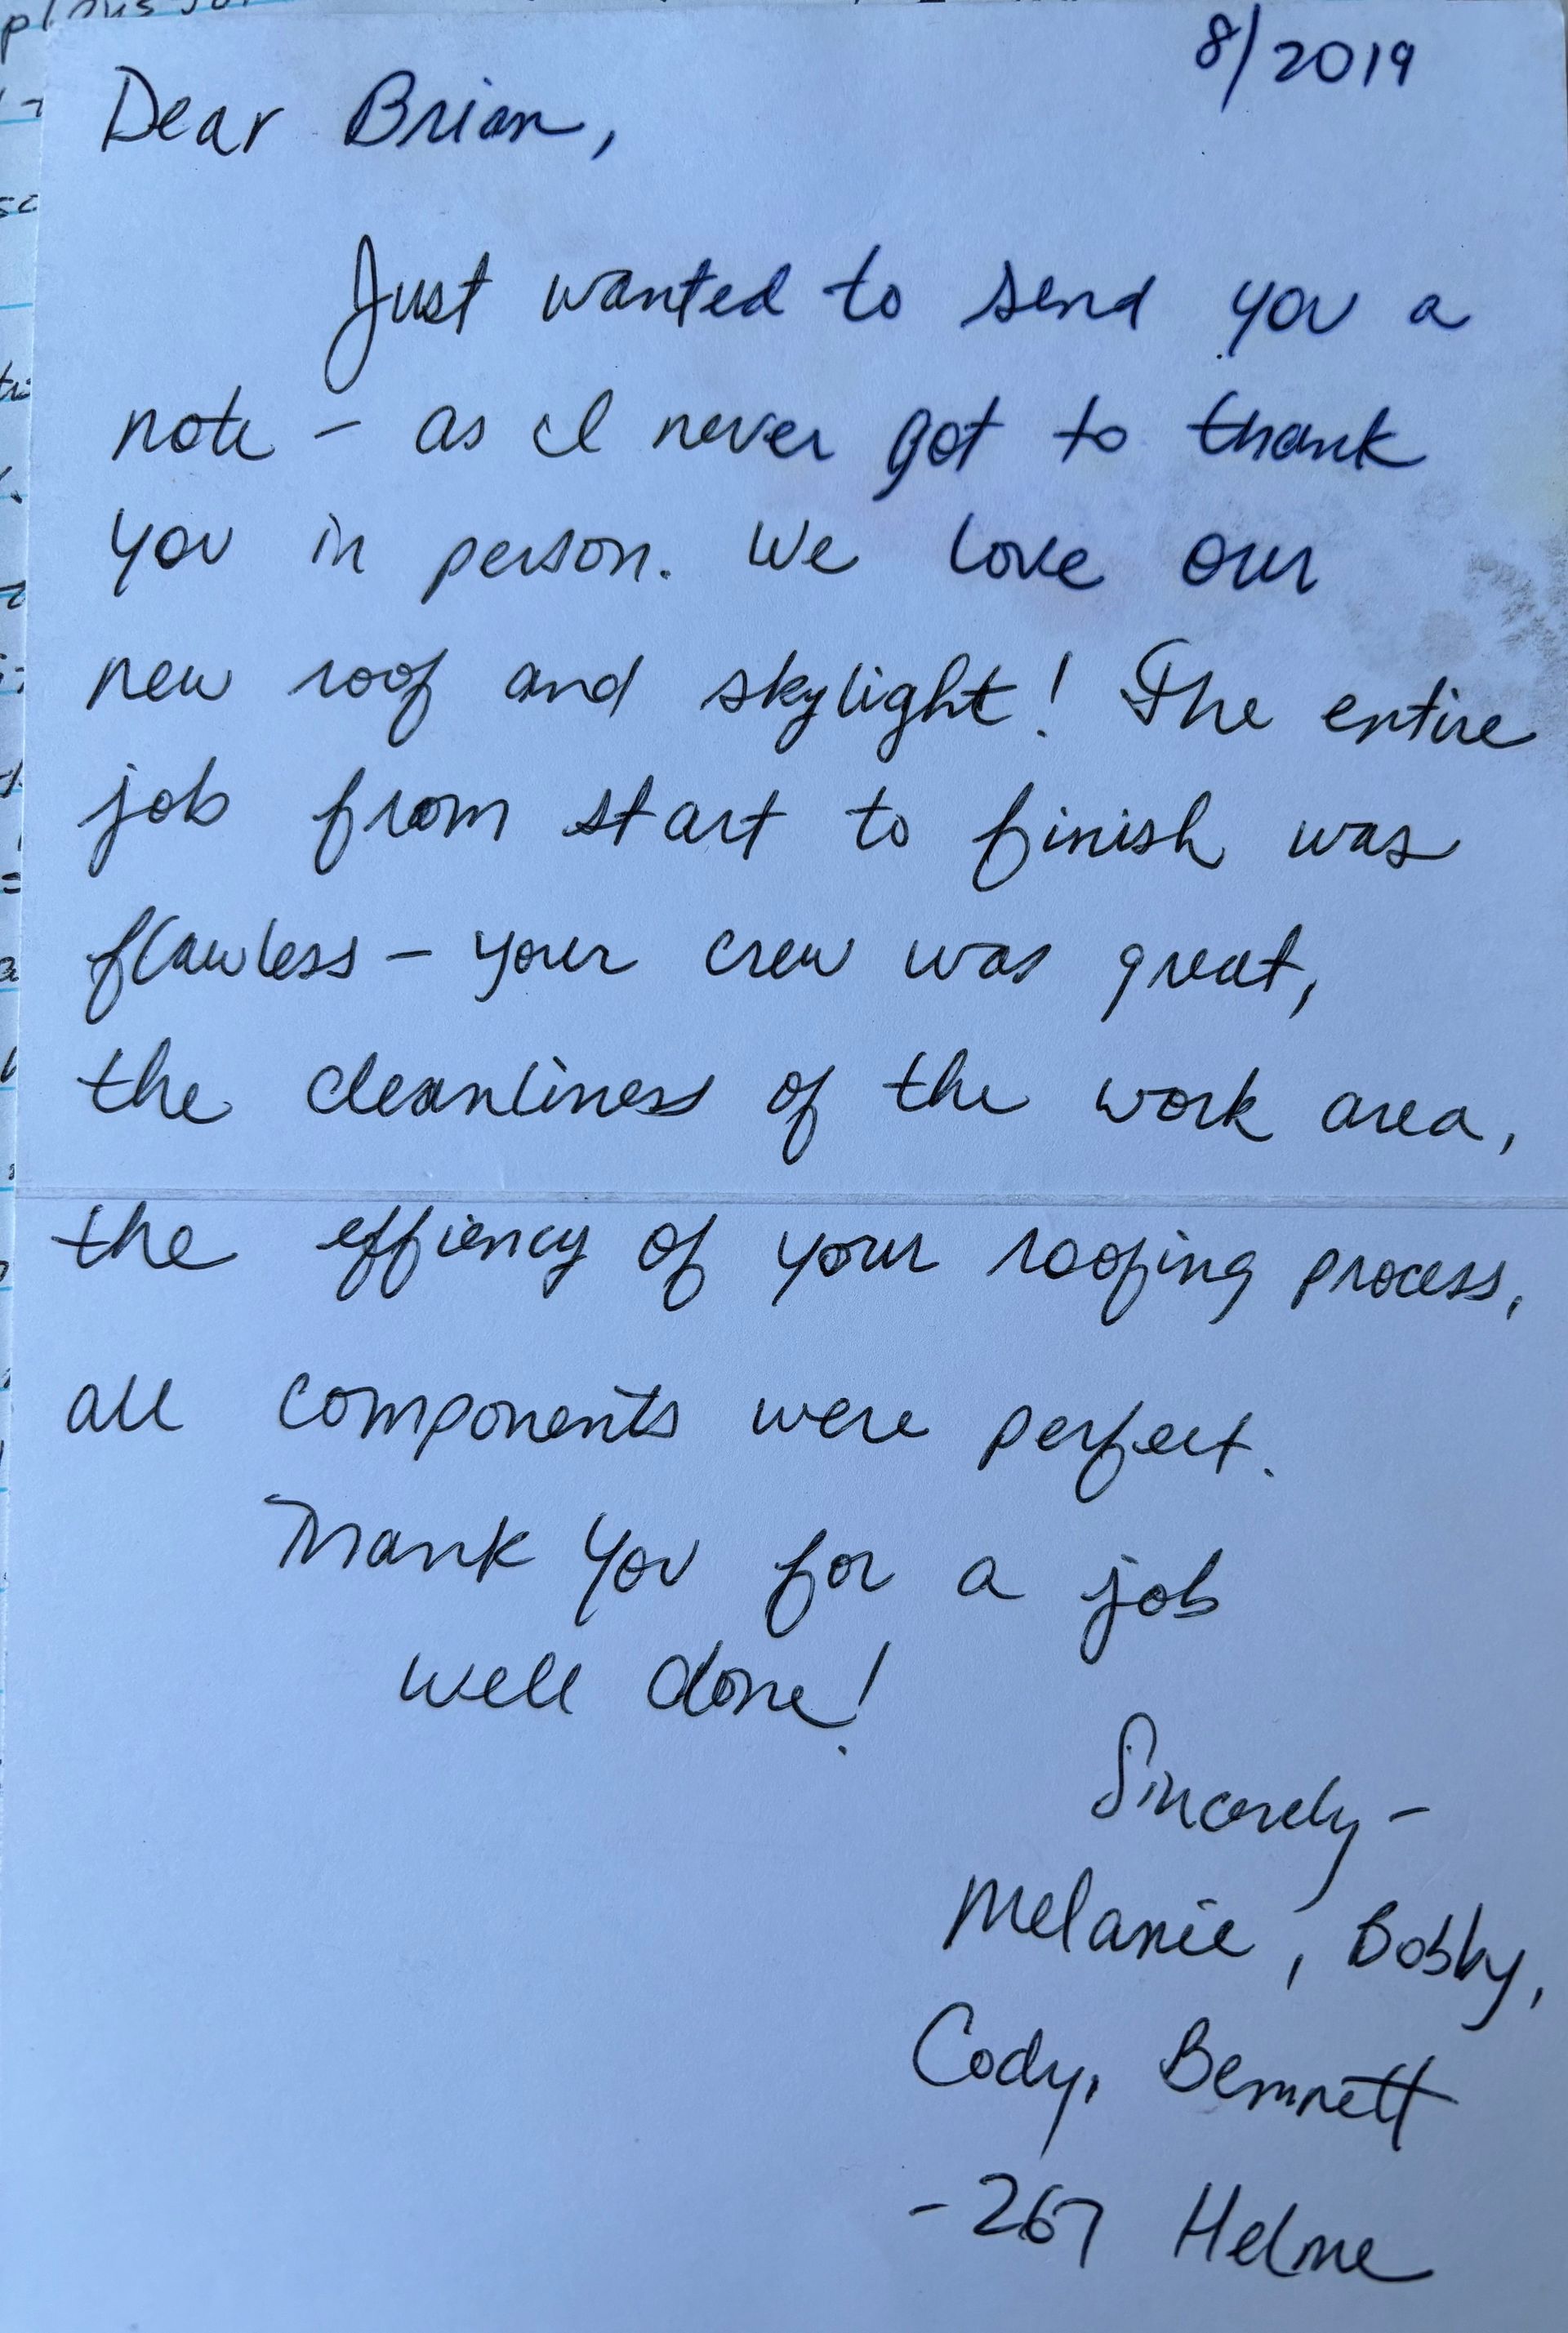 8/2019
Dear Brian,
Just wanted to send you a
note - as I never got to thank
you in person. We love our
new roof and skylight! The entire
job from start to finish was
flawless - your crew was great,
the cleanliness of the work area,
the effiency of your roofing process,
all components were perfect.
Thank you for a job
well done!
Sincerely -
Melanie, Bobby,
Cody, Bennett
- 267 Helme